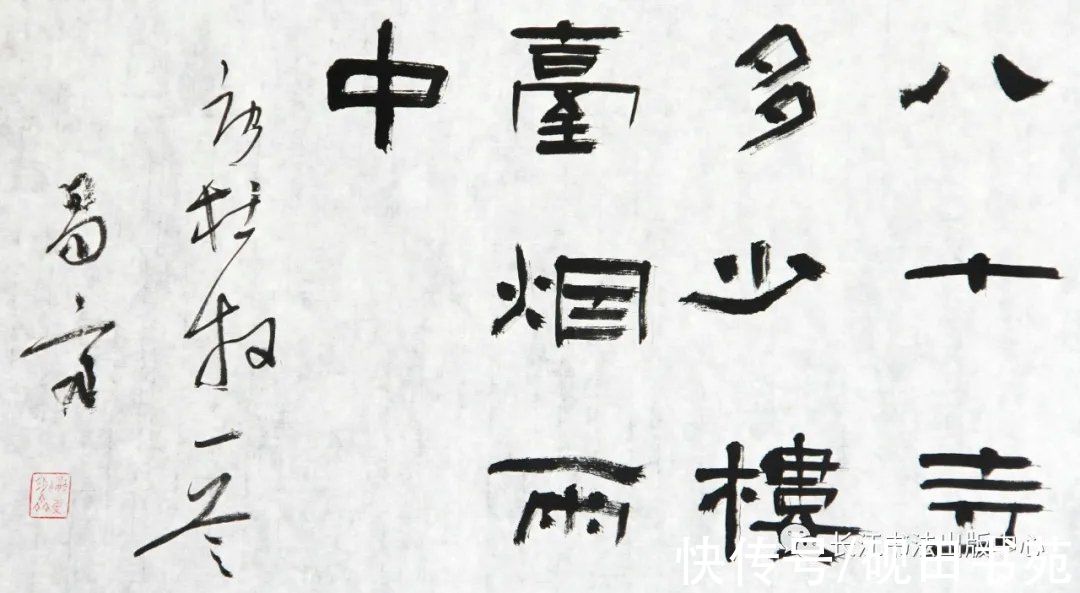 八十寺
多少樓
臺烟雨
中
杜牧一
长江书法出版中心
快传号/砚田书苑